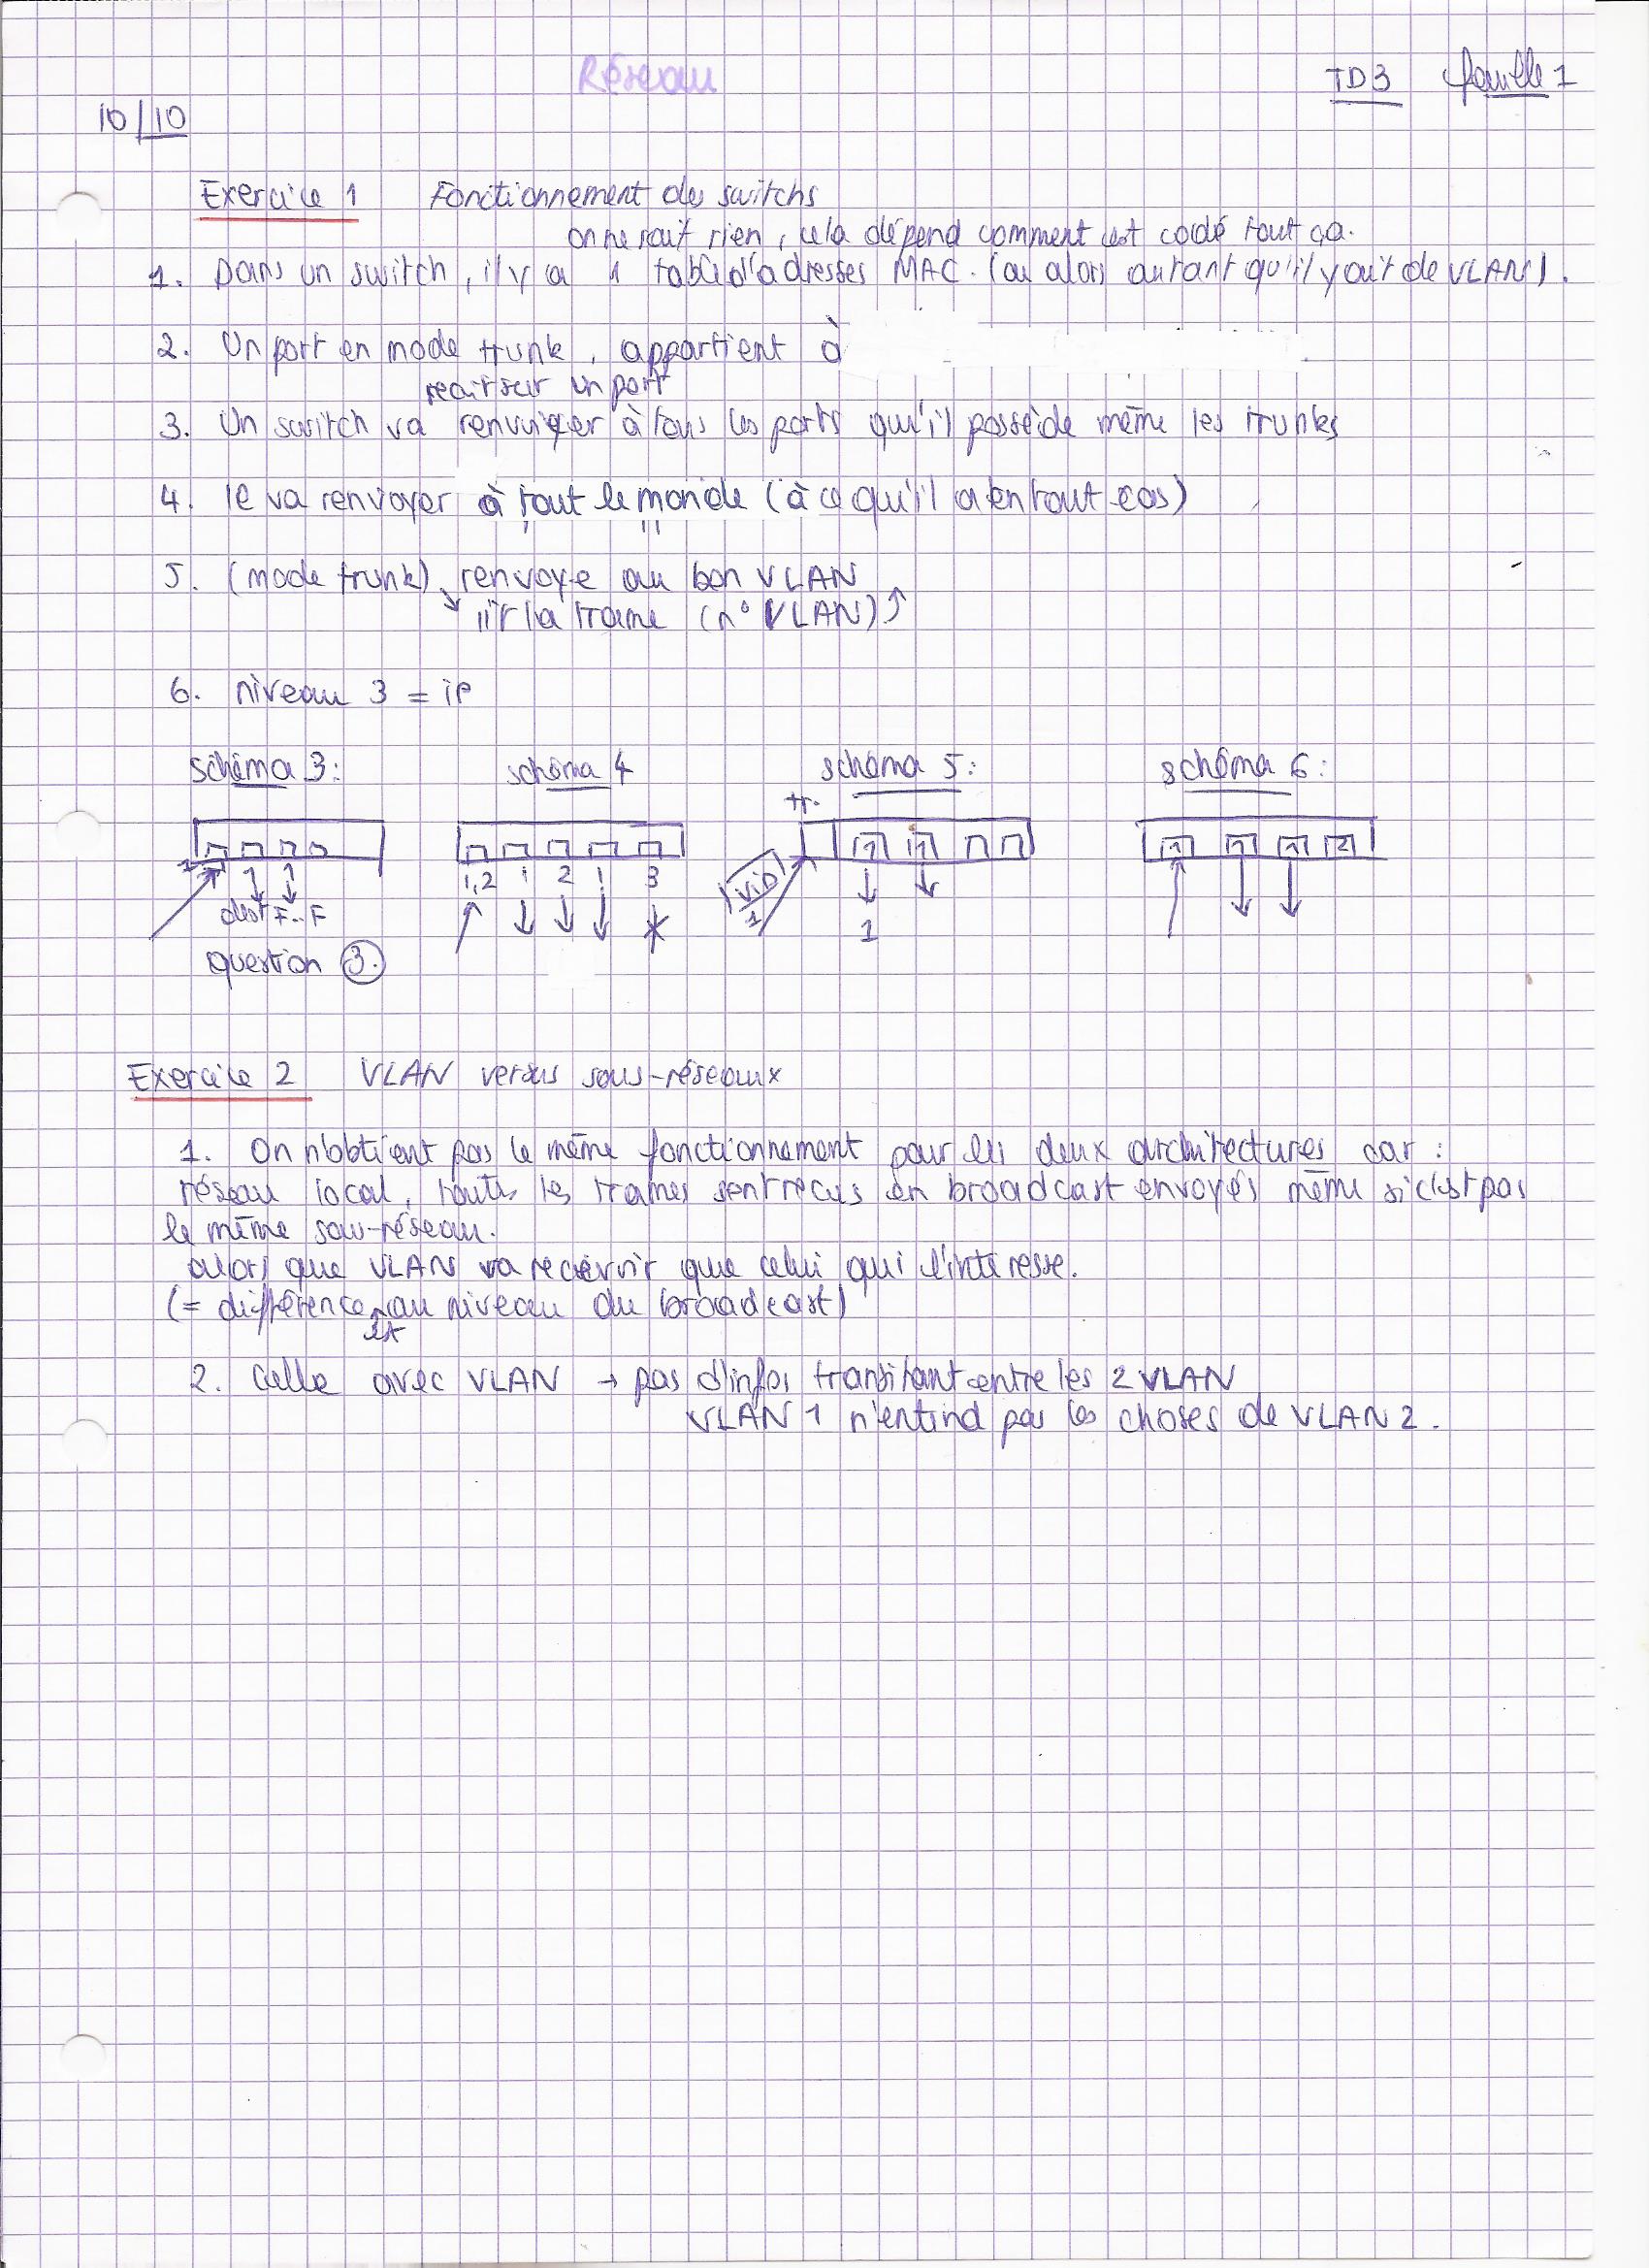 Réseau
TD3 feuille 1
10/10
Exercice 1 Fonctionnement des switchs
on ne sait rien, cela dépend comment est codé tout ça.
1. Dans un switch, il y a 1 table d'adresses MAC. (ou alors autant qu'il y ait de VLAN).
2. Un port en mode trunk, appartient à
reçoit sur un port
3. Un switch va renvoyer à tous les ports qu'il possède même les trunks
4. Il va renvoyer à tout le monde (à ce qu'il a en tout cas)
5. (mode trunk) renvoye au bon VLAN
lit la trame (n° VLAN)
6. niveau 3 = iP
schéma 3: schéma 4 schéma 5: schéma 6:
tr.
1 1 1 1 1 1 1 2
1 1 1,2 1 2 1 3 VID 1
dest F..F 1
question 3.
Exercice 2 VLAN versus sous-réseaux
1. On n'obtient pas le même fonctionnement pour les deux architectures car :
réseau local, toutes les trames sont reçus en broadcast envoyés même si c'est pas
le même sous-réseau.
alors que VLAN va recevoir que celui qui l'intéresse.
(= différence au niveau du broadcast)
2. Celle avec VLAN → pas d'infos transitant entre les 2 VLAN
VLAN 1 n'entend pas les choses de VLAN 2.